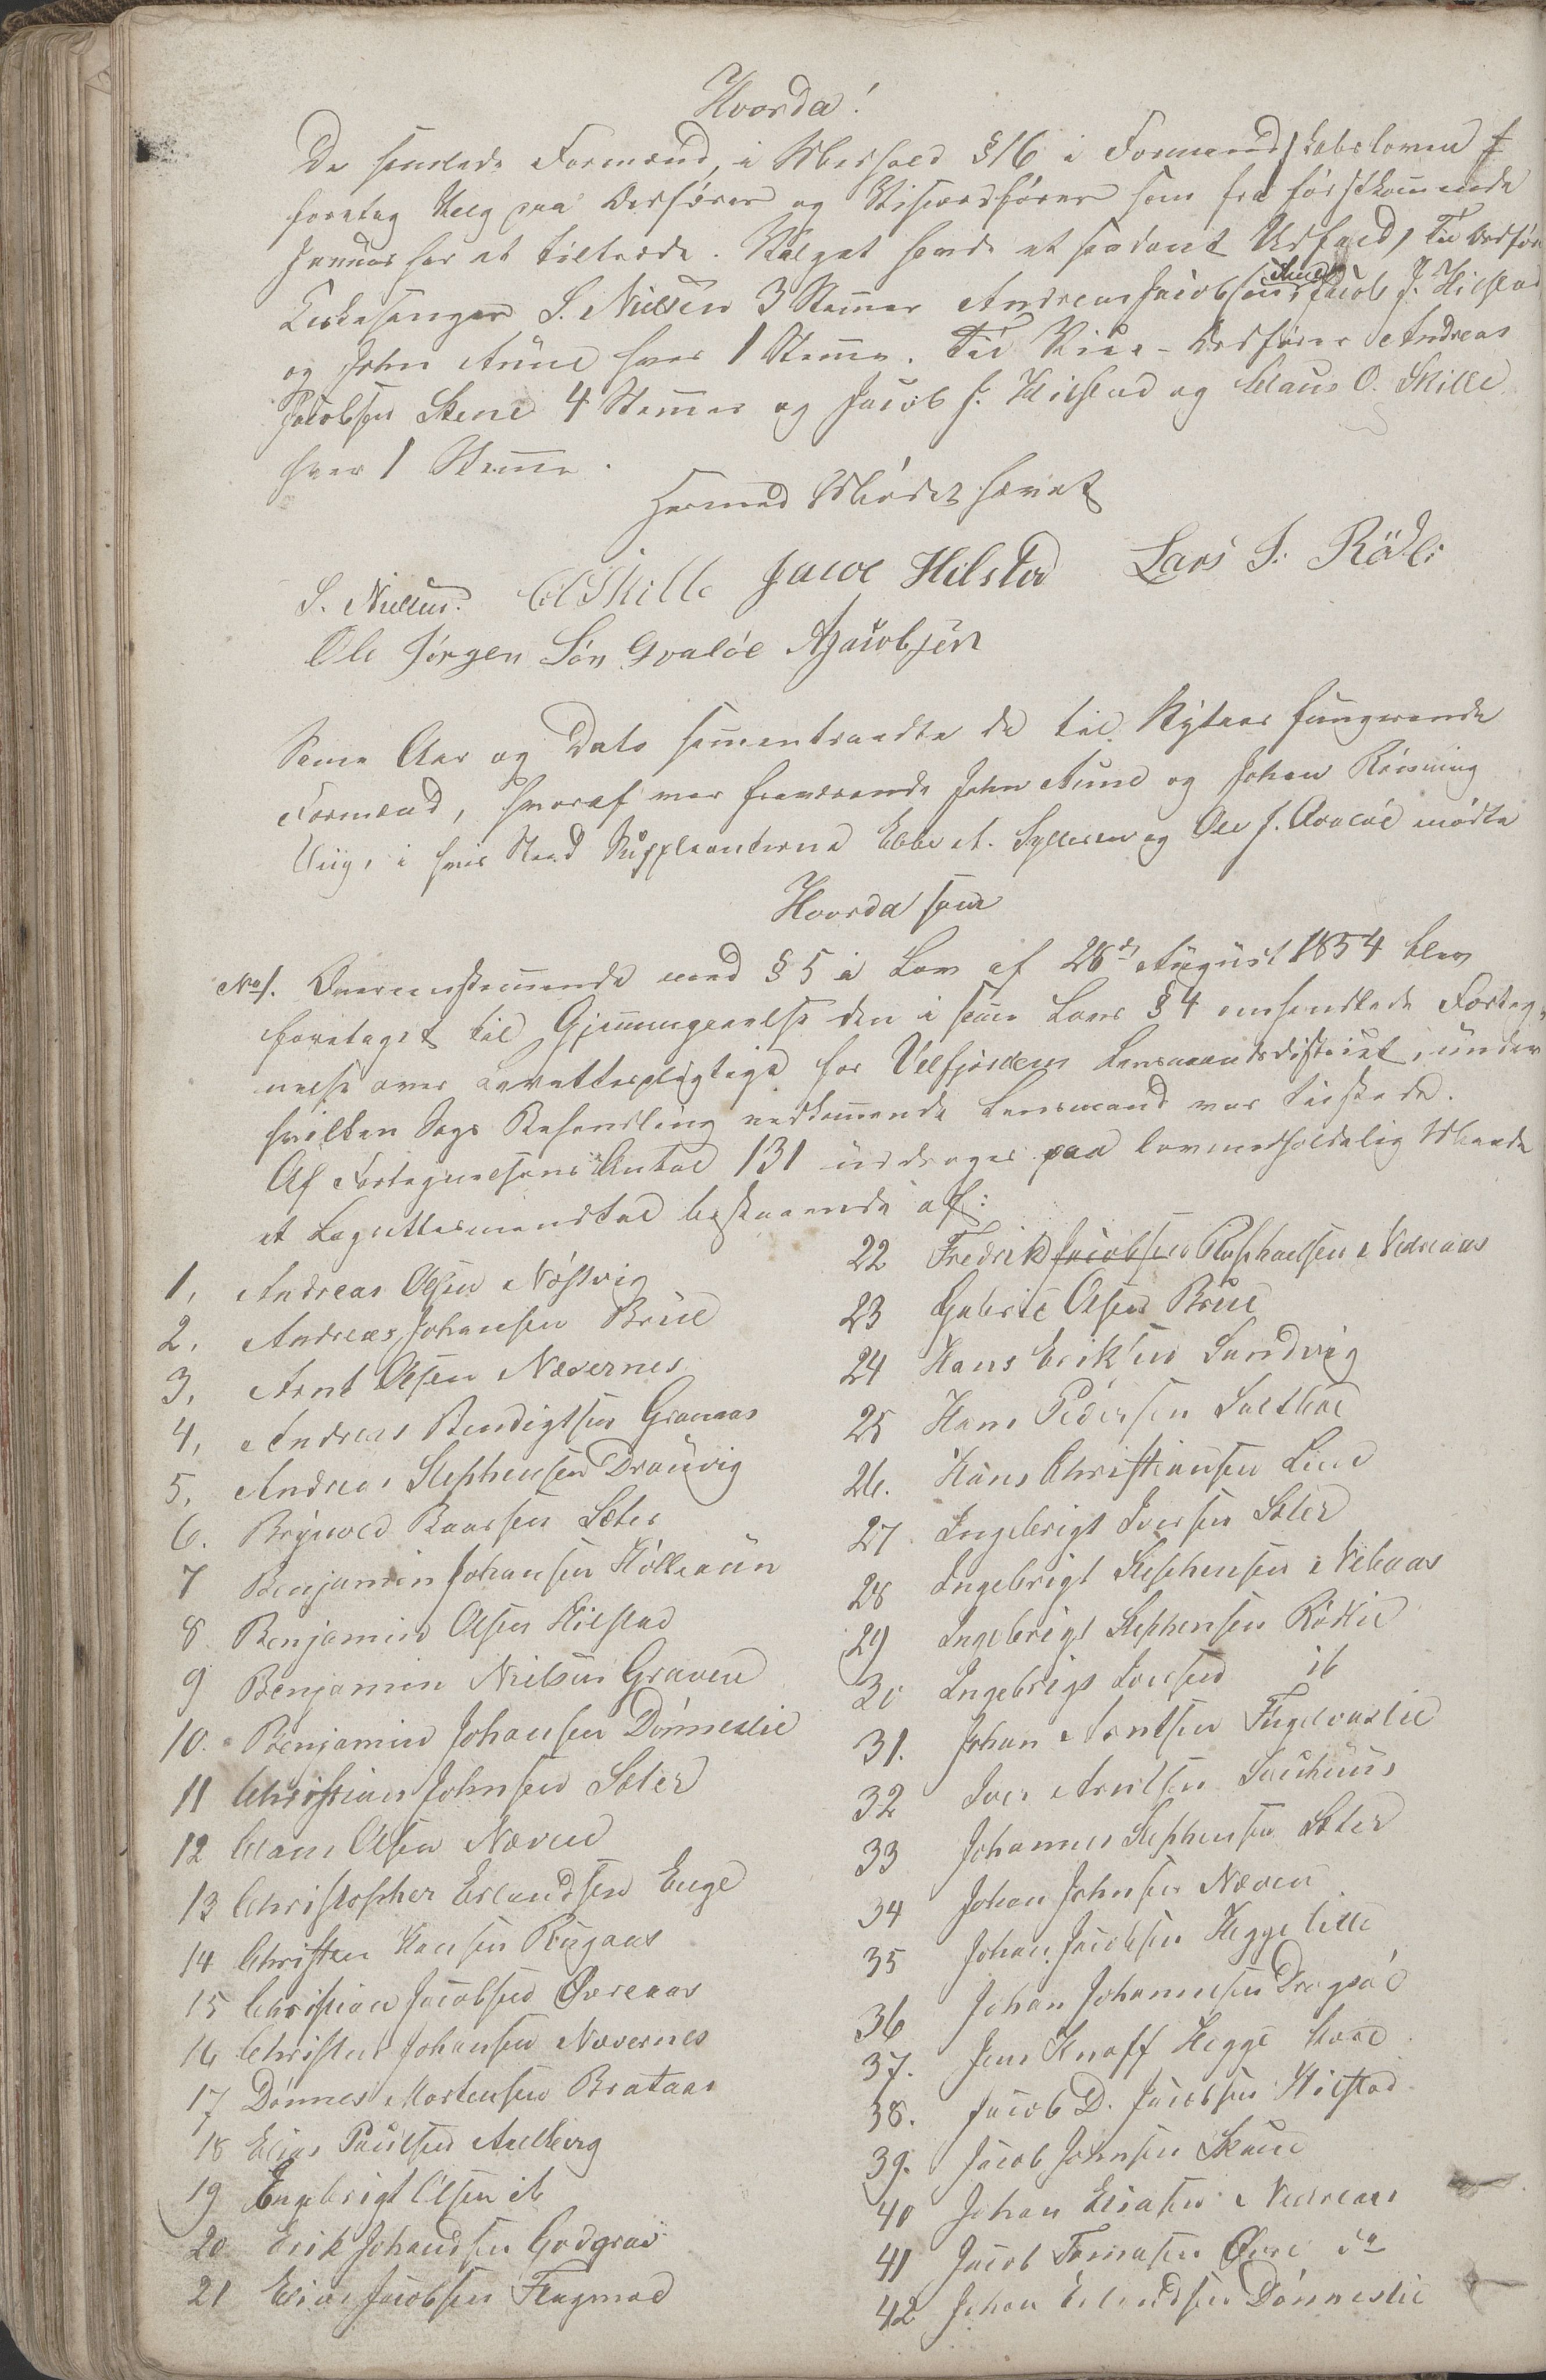 Hvorda!
De samlede Formænd, i Medhold §16 i Formandskabsloven
foretog Valg paa Ordfører og Viseordfører som fra førstkommende
Januar har at tiltræde. Valget havde et saadant Udfald, til Ordfører
Kirkesanger S. Nielsen 3 Stemmer Andreas Jacobsen Jacob J. Hilstad
og John Aune hver 1 Stemme. Til Vise-Ordfører Andreas
Jacobsen Stene 4 Stemmer og Jacob J. Hilstad og Claus O. Skille
hver 1 Stemme.
Hermed Mødet hævet
S. Nielsen. C O Skille Jacob Hilstad Lars I. Rödli
Ole Jörgen Sön Qvalöe A Jacobsen
Samme Aar og Dato sammentraadte de til Nytaar fungerende
Formænd, hvoraf var fraværende John Aune og Johan Rönning
Viig, i hvis Sted Suppleanterne Ebbe A. Sylleren og Ole J. Qvaløe mødte
Hvorda som
No 1. Overensstemmende med §5 i Lov af 28de August 1854 blev
foretaget til Gjennemgaaelse den i samme Lovs §4 omhandlede Forteg-
nelse over Lagrettespligtige for Velfjordens Lensmandsdistrict, under
hvilken Sags Behandling vedkommende Lensmand var tilstede.
Af Fortegnelsens Antal 131 uddroges paa lovmedholdelig Maade
et Lagrettesmandtal bestaaende af:
1, Andreas Olsen Nöstvig
2, Andreas Johansen Brue
3, Arnt Olsen Nævernes
4, Andreas Bendigtsen Granaas
5, Andreas Stephensen Drauvig
6. Brynild Baarsen Sæter
7 Benjamin Johansen Hölleaun
8 Benjamin Olsen Hilstad
9 Benjamin Nielsen Graven
10. Benjamin Johansen Dönneslie
11 Christian Johnsen Sæter
12 Claus Olsen Næven
13 Christopher Erlandsen Enge
14 Christen Hansen Rugaas
15 Christian Jacobsen Övreaas
16 Christen Johansen Nævernes
17 Dönnes Mortensen Brataas
18 Elias Paulsen Aelberg
19 Engebrigt Olsen ib
20 Erik Johansen Godgrav
21 Elias Jacobsen Flagmo
22 Fredrik Jacobsen Raphaelsen Nedreaas
23 Gabriel Olsen Brue
24 Hans Eriksen Sandvig
25 Hans Pedersen
26. Hans Christiansen Lien
27 Ingebrigt Iversen Sæter
28 Ingebrigt Stephensen Nebaas
29 Ingebrigt Stephensen Rödlie
30 Ingebrigt Iversen ib
31. Johan Arntsen Fuglvaslie
32 Iver Arntsen
33 Johannes Stephensen Sæter
34 Johan Johnsen Næven
35 Johan Jacobsen Hegge lille
36 Johan Johannesen Dragsöe
37. Jens Knoff Hegge store
38. Jacob D. Jacobsen Hilstad
39. Jacob Johnsen Skaue
40 Johan Eliasen Nedreaas
41 Jacob Tomasen Övre do
42 Johan Erlandsen Dönneslie